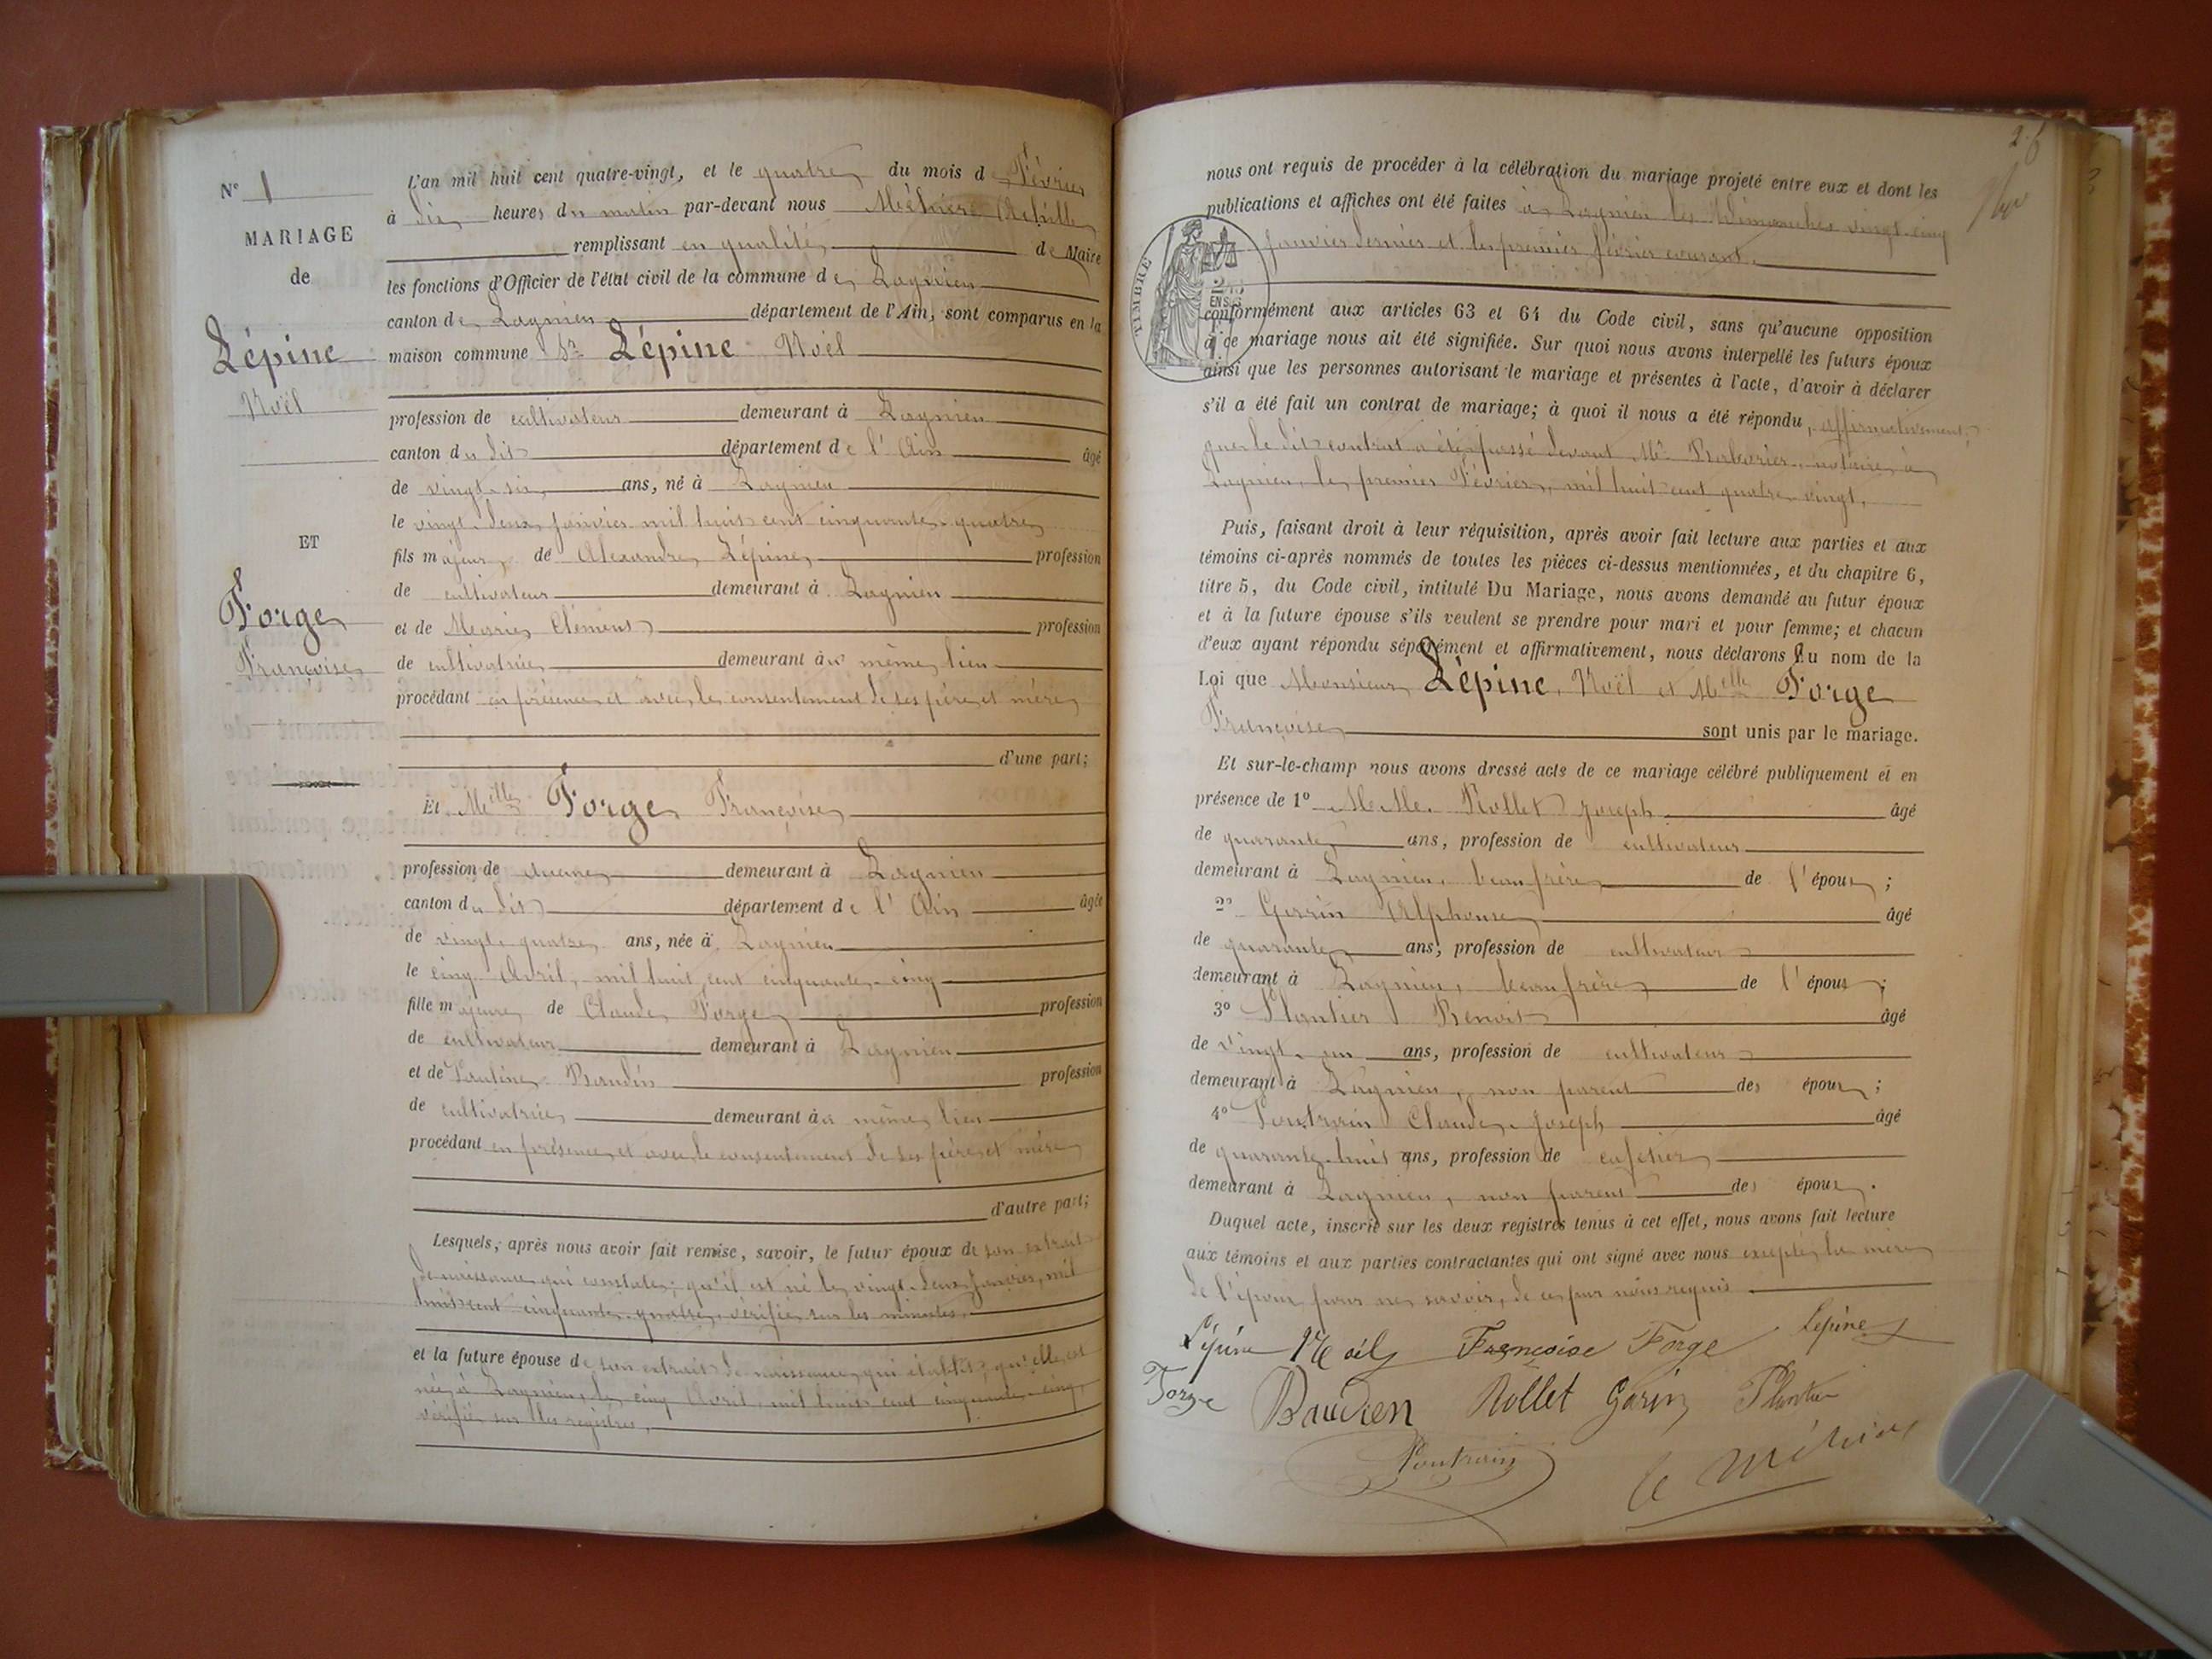 N° 1
MARIAGE
de
Lépine
Noël
ET
Forge
Françoise
L'an mil huit cent quatre-vingt, et le quatre du mois de Février
à dix heures du matin par-devant nous Achille
remplissant en qualité de Maire
les fonctions d'Officier de l'état civil de la commune de Lagnieu
canton de Lagnieu département de l'Ain, sont comparus en la
maison commune Sr Lépine Noël
profession de cultivateur demeurant à Lagnieu
canton du dit département de l'Ain âgé
de vingt-six ans, né à Lagnieu
le vingt-deux Janvier mil huit cent cinquante-quatre
fils majeur de Alexandre Lépine profession
de cultivateur demeurant à Lagnieu
et de Marie Clément profession
de cultivatrice demeurant au même lieu
procédant en présence et avec le consentement de ses père et mère
d'une part;
Et Melle Forge Françoise
profession de aucune demeurant à Lagnieu
canton du dit département de l'Ain âgée
de vingt-quatre ans, née à Lagnieu
le cinq Avril, mil huit cent cinquante-cinq
fille majeure de Claude Forge profession
de cultivateur demeurant à Lagnieu
et de Baudin profession
de cultivatrice demeurant au même lieu
procédant en présence et avec le consentement de ses père et mère
d'autre part;
Lesquels, après nous avoir fait remise, savoir, le futur époux de son extrait
de naissance qui constate, qu'il est né le vingt-deux Janvier, mil
huit cent cinquante-quatre, vérifié sur les minutes.
et la future épouse de son extrait de naissance, qui établit, qu'elle est
née à Lagnieu, le cinq Avril, mil huit cent cinquante-cinq,
vérifié sur les registres.
nous ont requis de procéder à la célébration du mariage projeté entre eux et dont les
publications et affiches ont été faites à Lagnieu les Dimanches vingt-cinq
Janvier dernier et le premier février courant.
TIMBRE
conformément aux articles 63 et 64 du Code civil, sans qu'aucune opposition
à ce mariage nous ait été signifiée. Sur quoi nous avons interpellé les futurs époux
ainsi que les personnes autorisant le mariage et présentes à l'acte, d'avoir à déclarer
s'il a été fait un contrat de mariage; à quoi il nous a été répondu, affirmativement,
que le dit contrat a été passé devant Me notaire à
Lagnieu, le premier Février, mil huit cent quatre-vingt.
Puis, faisant droit à leur réquisition, après avoir fait lecture aux parties et aux
témoins ci-après nommés de toutes les pièces ci-dessus mentionnées, et du chapitre 6,
titre 5, du Code civil, intitulé Du Mariage, nous avons demandé au futur époux
et à la future épouse s'ils veulent se prendre pour mari et pour femme; et chacun
d'eux ayant répondu séparément et affirmativement, nous déclarons au nom de la
Loi que Monsieur Lépine, Noël et Melle Forge
Françoise sont unis par le mariage.
Et sur-le-champ nous avons dressé acte de ce mariage célébré publiquement et en
présence de 1° M.M. Rollet Joseph âgé
de quarante ans, profession de cultivateur
demeurant à Lagnieu, beau frère de l'époux ;
2° Alphonse âgé
de quarante ans, profession de cultivateur
demeurant à Lagnieu, beau frère de l'époux ;
3° Plantier Benoit âgé
de vingt-un ans, profession de cultivateur
demeurant à Lagnieu, non parent des époux ;
4° Poutrain Claude-Joseph âgé
de quarante-huit ans, profession de cafetier
demeurant à Lagnieu, non parent des époux.
Duquel acte, inscrit sur les deux registres tenus à cet effet, nous avons fait lecture
aux témoins et aux parties contractantes qui ont signé avec nous excepté la mère
de l'époux pour ne savoir, de ce par nous requis.
Lépine Noël Françoise Forge Lépine
Forge Rollet Garin
Poutrain